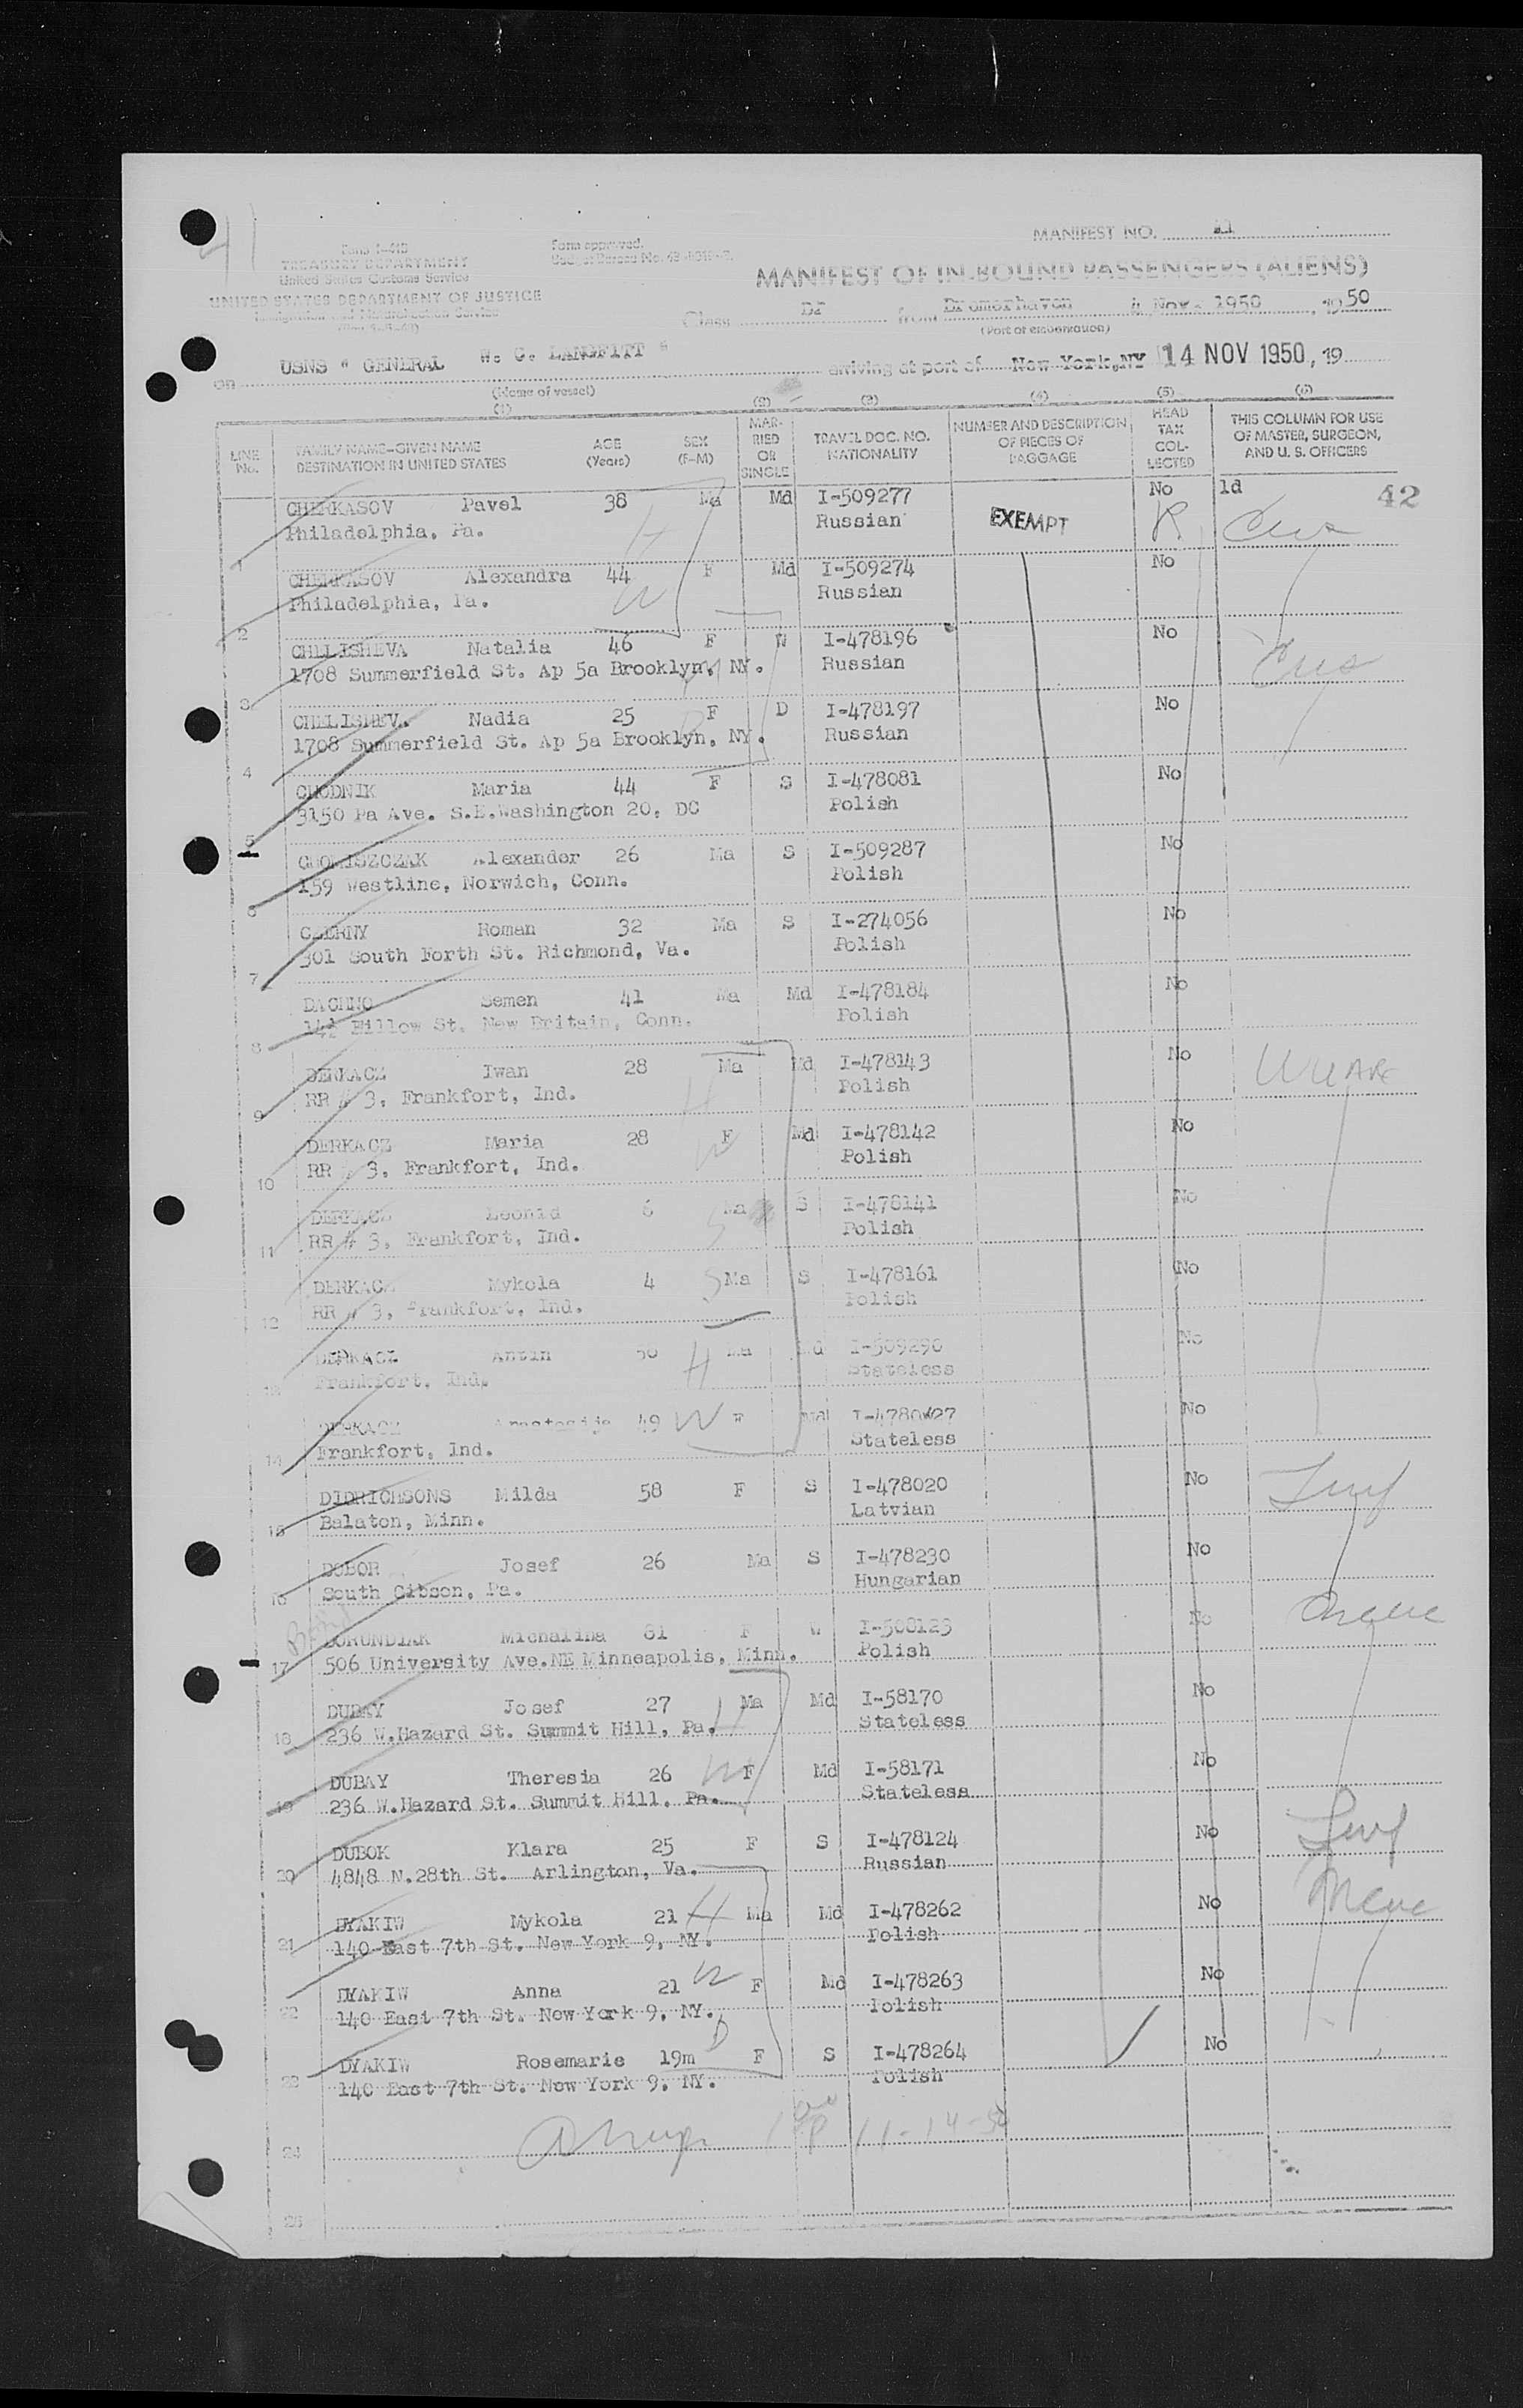 41
MANIFEST NO.
Form I-415
TREASURY DEPARTMENT
United States Customs Service
UNITED STATES DEPARTMENT OF JUSTICE
Immigration and Naturalization Service
Form approved.
Budget Bureau No.
MANIFEST OF IN-BOUND PASSENGERS (ALIENS)
Class DP from Bremerhaven 4 Nov. 1950, 1950
(Port of embarkation)
on USNS " GENERAL W. C. LANGFITT " arriving at port of New York, NY 14 NOV 1950, 19
(Name of vessel)
(1) (2) (3) (4) (5) (6)
LINE No. FAMILY NAME—GIVEN NAME DESTINATION IN UNITED STATES AGE (Years) SEX (F-M) MARRIED OR SINGLE TRAVEL DOC. NO. NATIONALITY NUMBER AND DESCRIPTION OF PIECES OF BAGGAGE HEAD TAX COLLECTED THIS COLUMN FOR USE OF MASTER, SURGEON, AND U. S. OFFICERS
CHERKASOV Pavel 38 Ma Md I-509277 No 1d 42
Philadelphia, Pa. Russian EXEMPT
1
CHERKASOV Alexandra 44 F Md I-509274 No
Philadelphia, Pa. Russian
2
CHELISHEVA Natalia 46 F W I-478196 No
1708 Summerfield St. Ap 5a Brooklyn, NY. Russian
3
CHELISHEVA Nadia 25 F D I-478197 No
1708 Summerfield St. Ap 5a Brooklyn, NY. Russian
4
CHODNIK Maria 44 F S I-478081 No
3150 Pa Ave. S.E.Washington 20, DC Polish
5
Alexander 26 Ma S I-509287 No
159 Westline, Norwich, Conn. Polish
6
CZERNY Roman 32 Ma S I-274056 No
301 South Forth St. Richmond, Va. Polish
7
DACHNO Semen 41 Ma Md I-478184 No
St. New Britain, Conn. Polish
8
DERKACZ Iwan 28 Ma Md I-478143 No
RR # 3, Frankfort, Ind. Polish
9
DERKACZ Maria 28 F Md I-478142 No
RR # 3, Frankfort, Ind. Polish
10
DERKACZ Leonid 6 Ma S I-478141 No
RR # 3, Frankfort, Ind. Polish
11
DERKACZ Mykola 4 Ma S I-478161 No
RR # 3, Frankfort, Ind. Polish
12
DERKACZ Antin 50 H Ma Md I-509290 No
Frankfort, Ind. Stateless
13
DERKACZ 49 W F Md No
Frankfort, Ind. Stateless
14
DIDRICHSONS Milda 58 F S I-478020 No
Balaton, Minn. Latvian
15
DOBOR Josef 26 Ma S I-478230 No
South Gibson, Pa. Hungarian
16
Michalina 81 F W I-508123 No
506 University Ave.NE Minneapolis, Minn. Polish
17
DUBAY Josef 27 Ma Md I-58170 No
236 W.Hazard St. Summit Hill, Pa. Stateless
18
DUBAY Theresia 26 W F Md I-58171 No
236 W.Hazard St. Summit Hill, Pa. Stateless
19
DUBOK Klara 25 F S I-478124 No
4848 N.28th St. Arlington, Va. Russian
20
DYAKIW Mykola 21 H Ma Md I-478262 No
140 East 7th St. New York 9, NY. Polish
21
DYAKIW Anna 21 W F Md I-478263 No
140 East 7th St. New York 9, NY. Polish
22
DYAKIW Rosemarie 19m F S I-478264 No
140 East 7th St. New York 9, NY. Polish
23
11-14-50
24
25